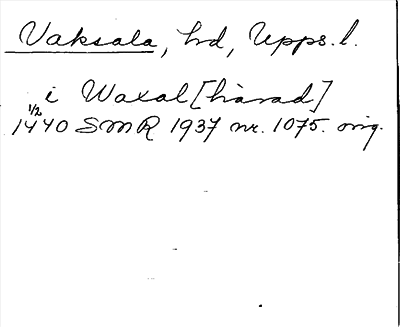 Vaksala, hd, Upps. l.
i Waxal [härad]
1/2
1440 SMR 1937 nr. 1075. orig.